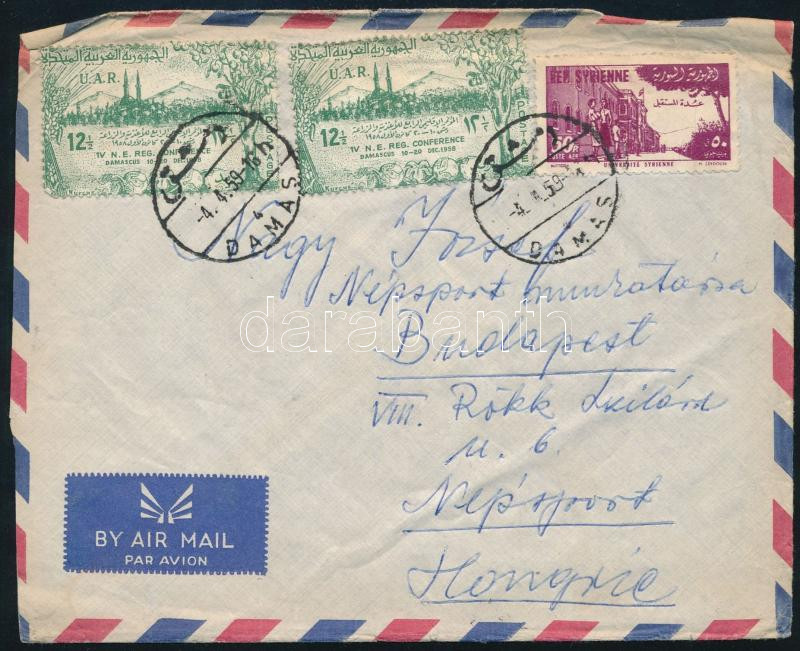 الجمهورية العربية المتحدة
U.A.R.
12½ ١٢½
IV N.E. REG. CONFERENCE
DAMASCUS 10-20 DEC. 1958
POSTES
الجمهورية العربية المتحدة
U.A.R.
12½ ١٢½
IV N.E. REG. CONFERENCE
DAMASCUS 10-20 DEC. 1958
REP. SYRIENNE الجمهورية السورية
عدة المستقبل
50 ٥٠
POSTE AER
UNIVERSITÉ SYRIENNE
دمشق
-4.4.59-16
DAMAS
دمشق
-4.4.59-
DAMAS
Nagy József
Népsport munkatársa
Budapest
VIII. Rökk Szilárd
u. 6.
Népsport
Hongrie
darabanth
BY AIR MAIL
PAR AVION